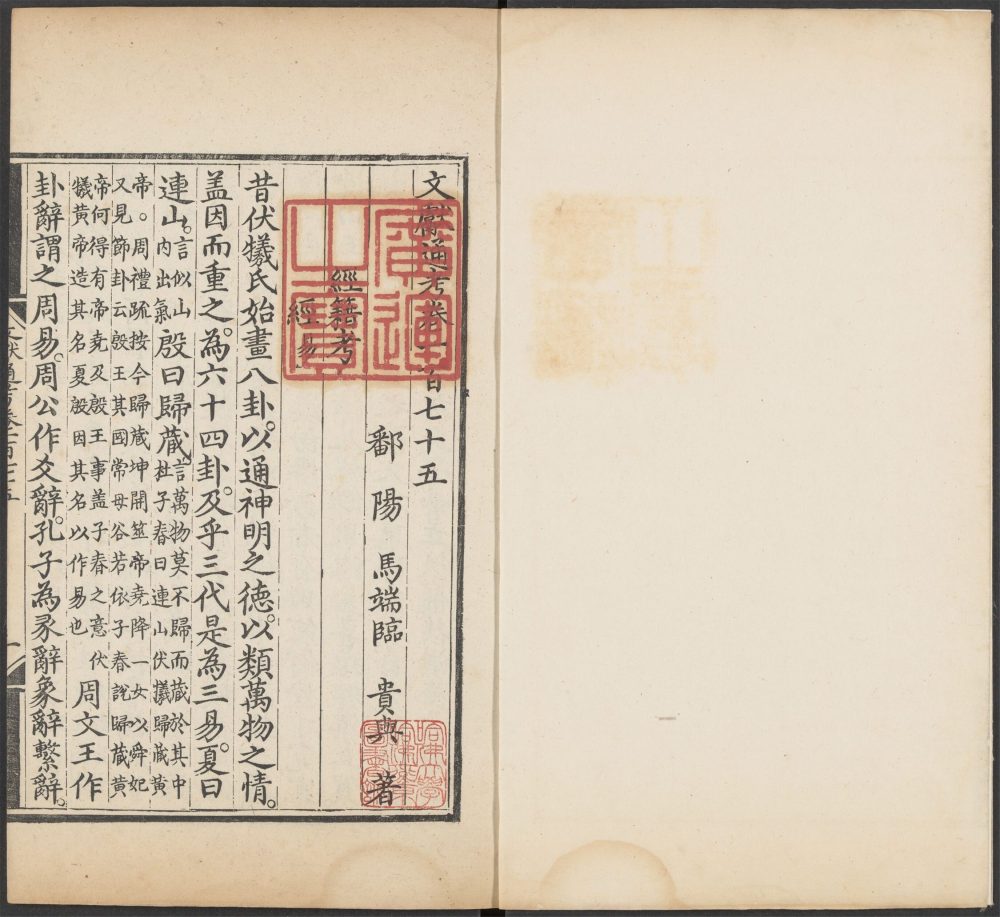 文獻通考卷一百七十五
鄱陽馬端臨貴與著
經籍考
經易
昔伏犧氏始畫八卦。以通神明之德。以類萬物之情。
盖因而重之。為六十四卦。及乎三代是為三易。夏曰
連山。言似山內出氣殷曰歸藏。言萬物莫不歸而藏於其中杜子春曰連山伏犧歸藏黃
帝。周禮疏按今歸藏坤開筮帝堯降二女以舜妃又見節卦云殷王其國常毋谷若依子春說歸藏黃
帝何得有帝堯及殷王事盖子春之意伏犧黃帝造其名夏殷因其名以作易也周文王作
卦辭謂之周易。周公作爻辭。孔子為彖辭象辭繫辭。